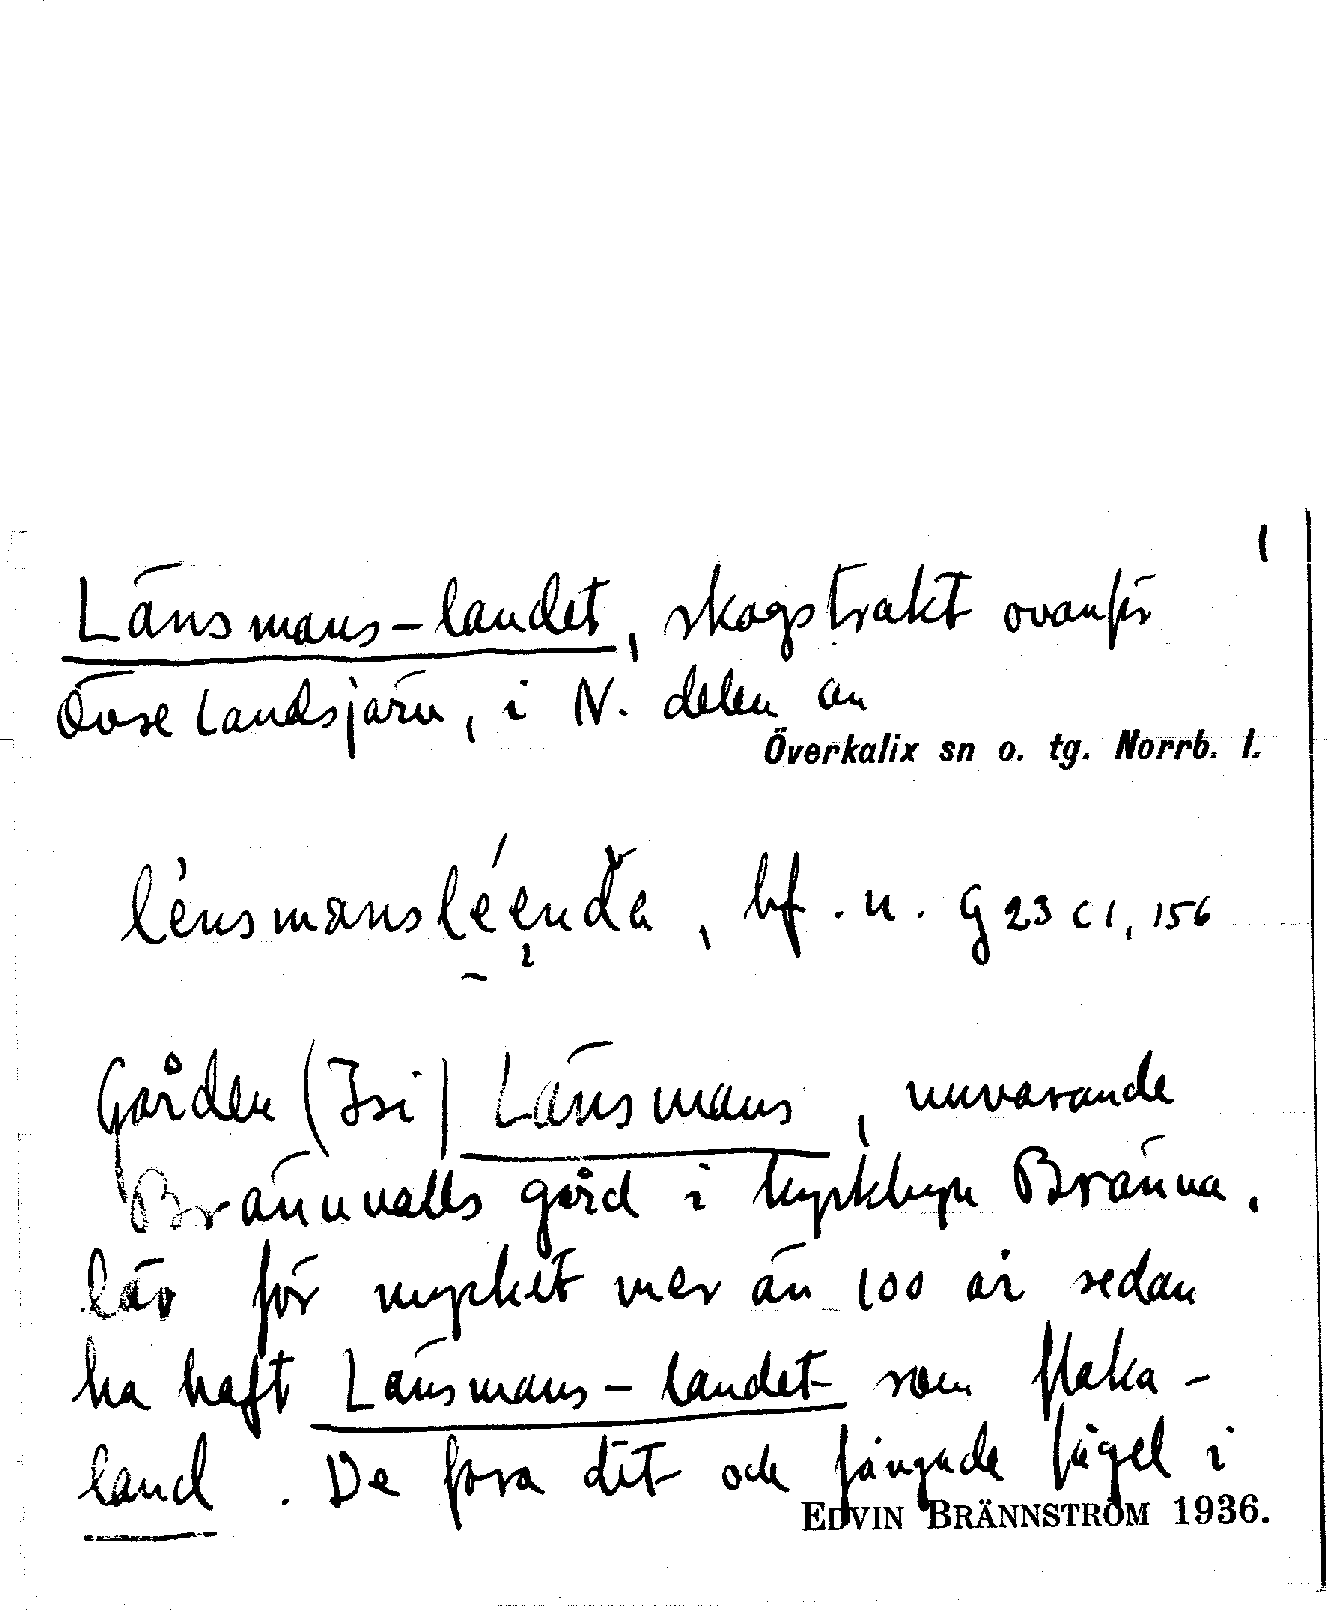 1
Länsmans-landet, skogstrakt ovanför
Övre Landsjärv, i N. delen av
Överkalix sn o. tg. Norrb. l.
bf. n. G 23 C 1, 156
Gården (Isi) Länsmans, nuvarande
Brännvalls gård i kyrkbyn Bränna,
lär för mycket mer än 100 år sedan
ha haft Länsmans-landet som flaka-
land. De fora dit och fångade fågel i
EDVIN BRÄNNSTRÖM 1936.